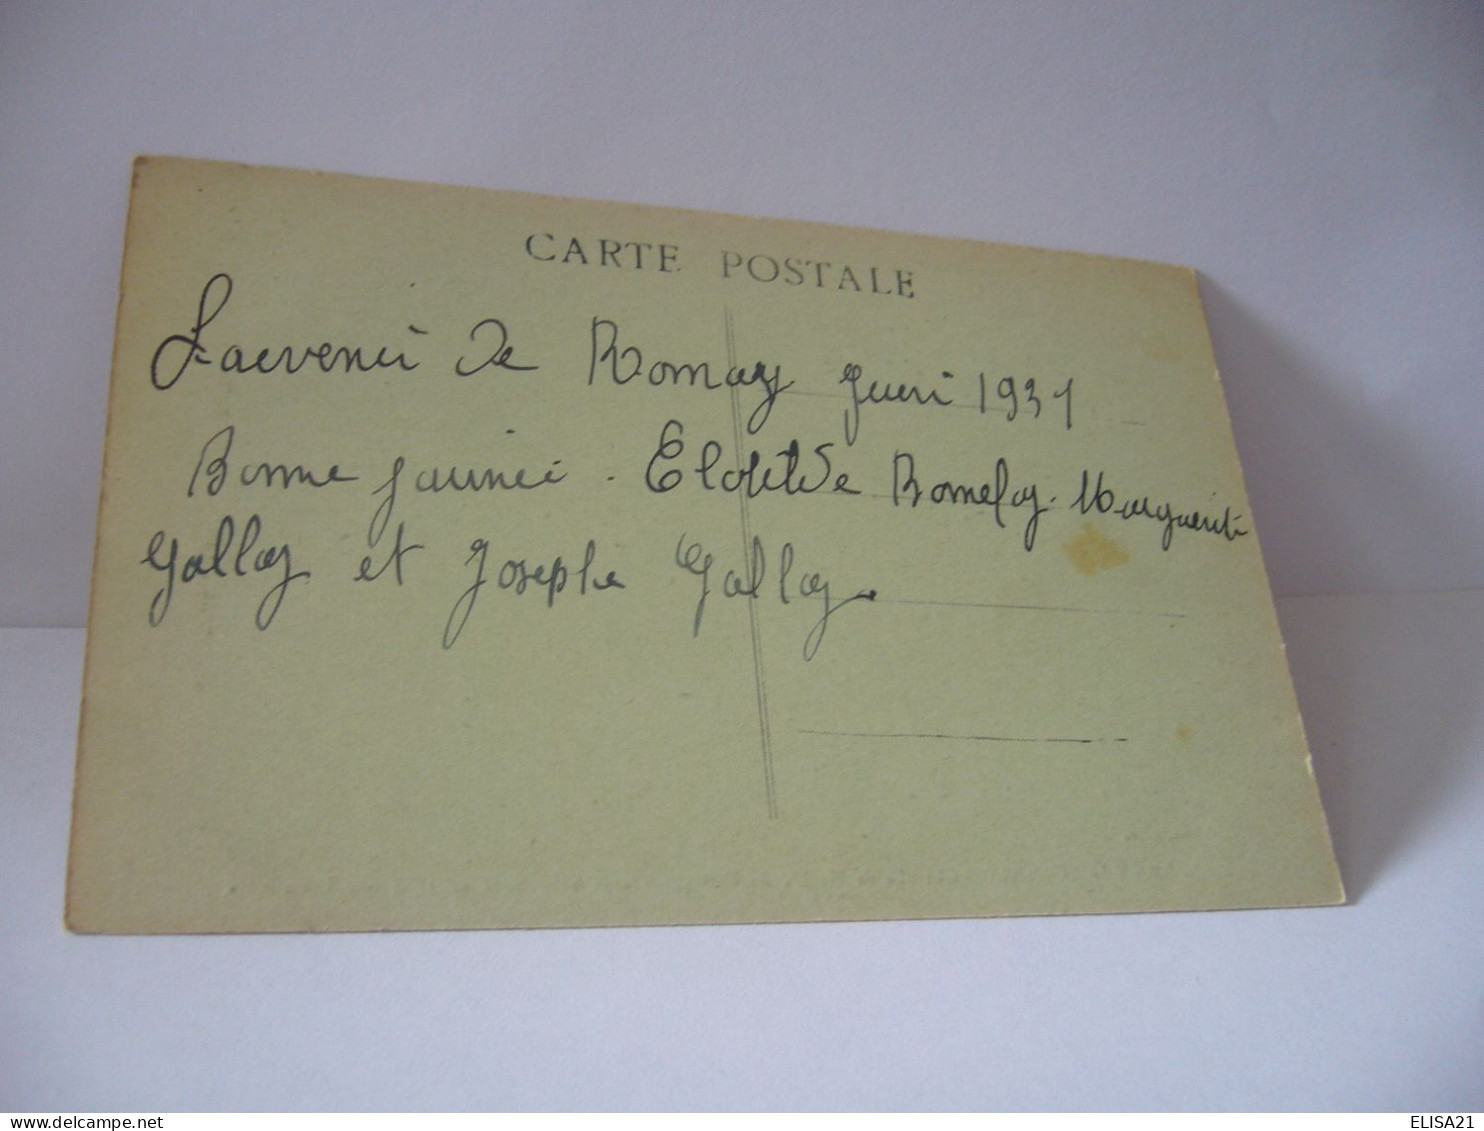 CARTE POSTALE
Souvenir de Romay Juin 1931
Bonne journée. Clotilde Romefoy. Marguerite
Gallay et Josephe Gallay.
delcampe.net
ELISA21